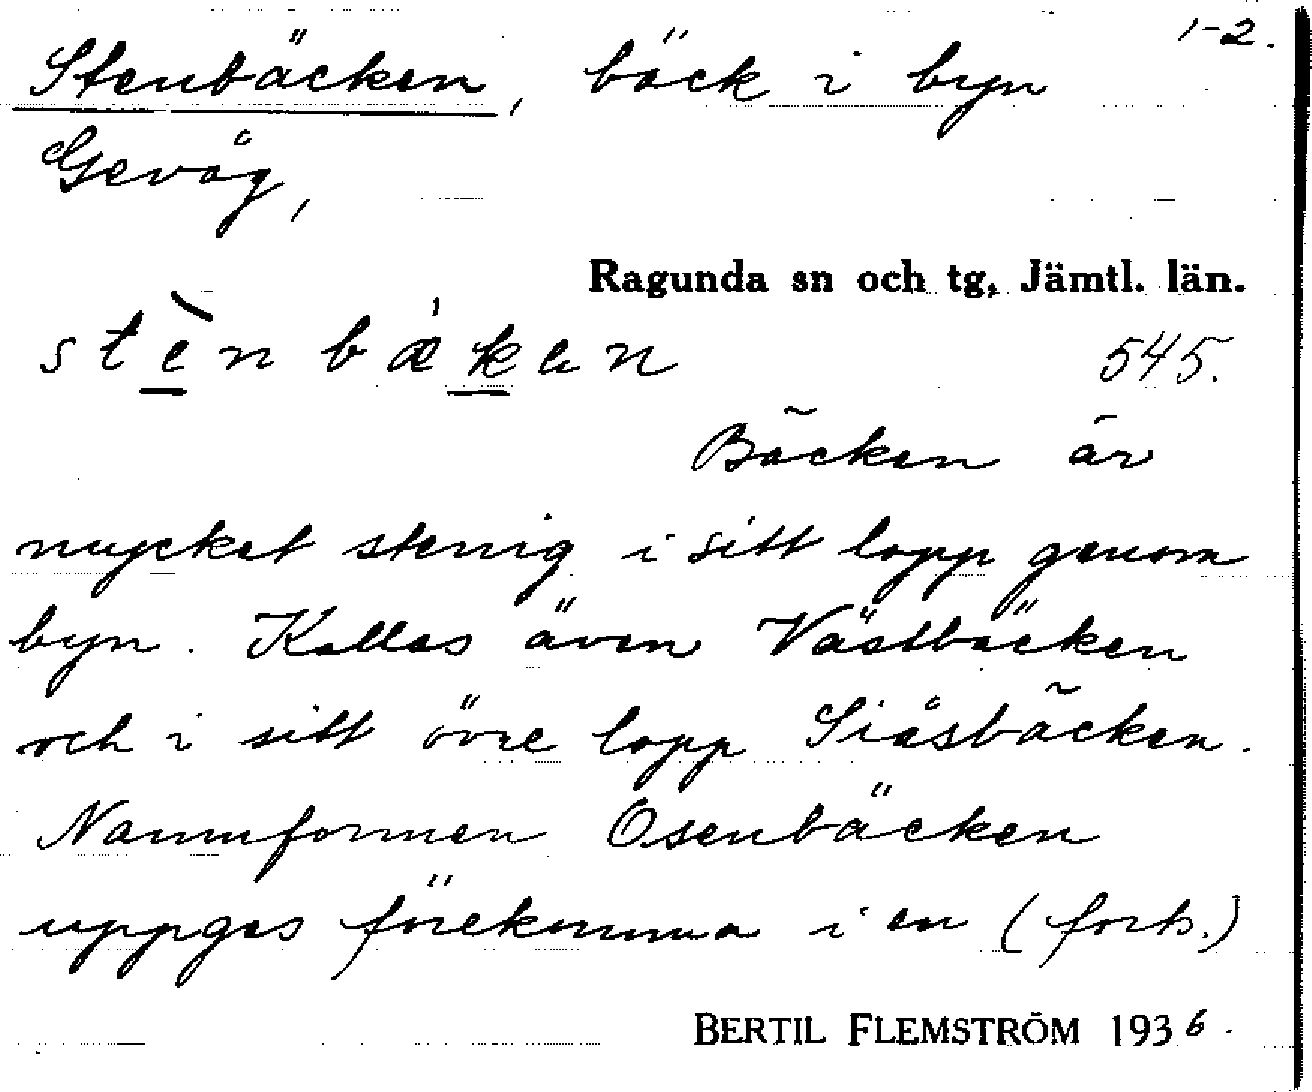 1-2.
Stenbäcken, bäck i byn
Gevåg,
Ragunda sn och tg, Jämtl. län.
stènbǽkan 545.
Bäcken är
mycket stenig i sitt lopp genom
byn. Kallas även Västbäcken
och i sitt övre lopp Siåsbäcken.
Namnformen Osenbäcken
uppges förekomma i en (forts.)
BERTIL FLEMSTRÖM 1936.